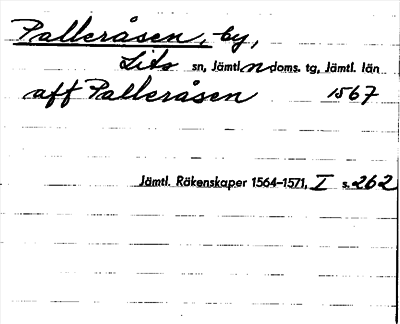 Palleråsen, by,
Lits sn, Jämtl. n doms. tg, Jämtl. län
aff Palleråsen 1567
Jämtl. Räkenskaper 1564–1571, I s. 262